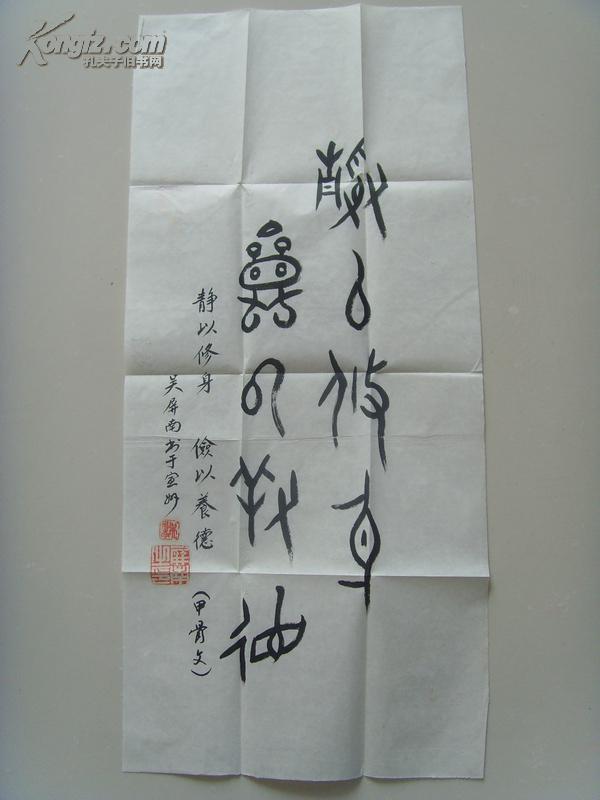 静以修身
儉以養德
静以修身 儉以養德 (甲骨文)
吴屏南书于宣州
Kongfz.com
孔夫子旧书网